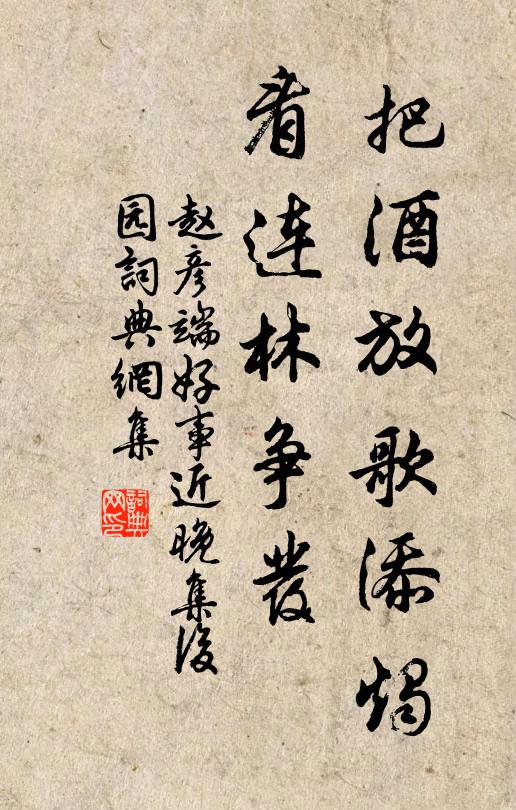 把酒放歌添燭
看連林争發
赵彦端好事近晚集後
园詞典網集
詞典网印